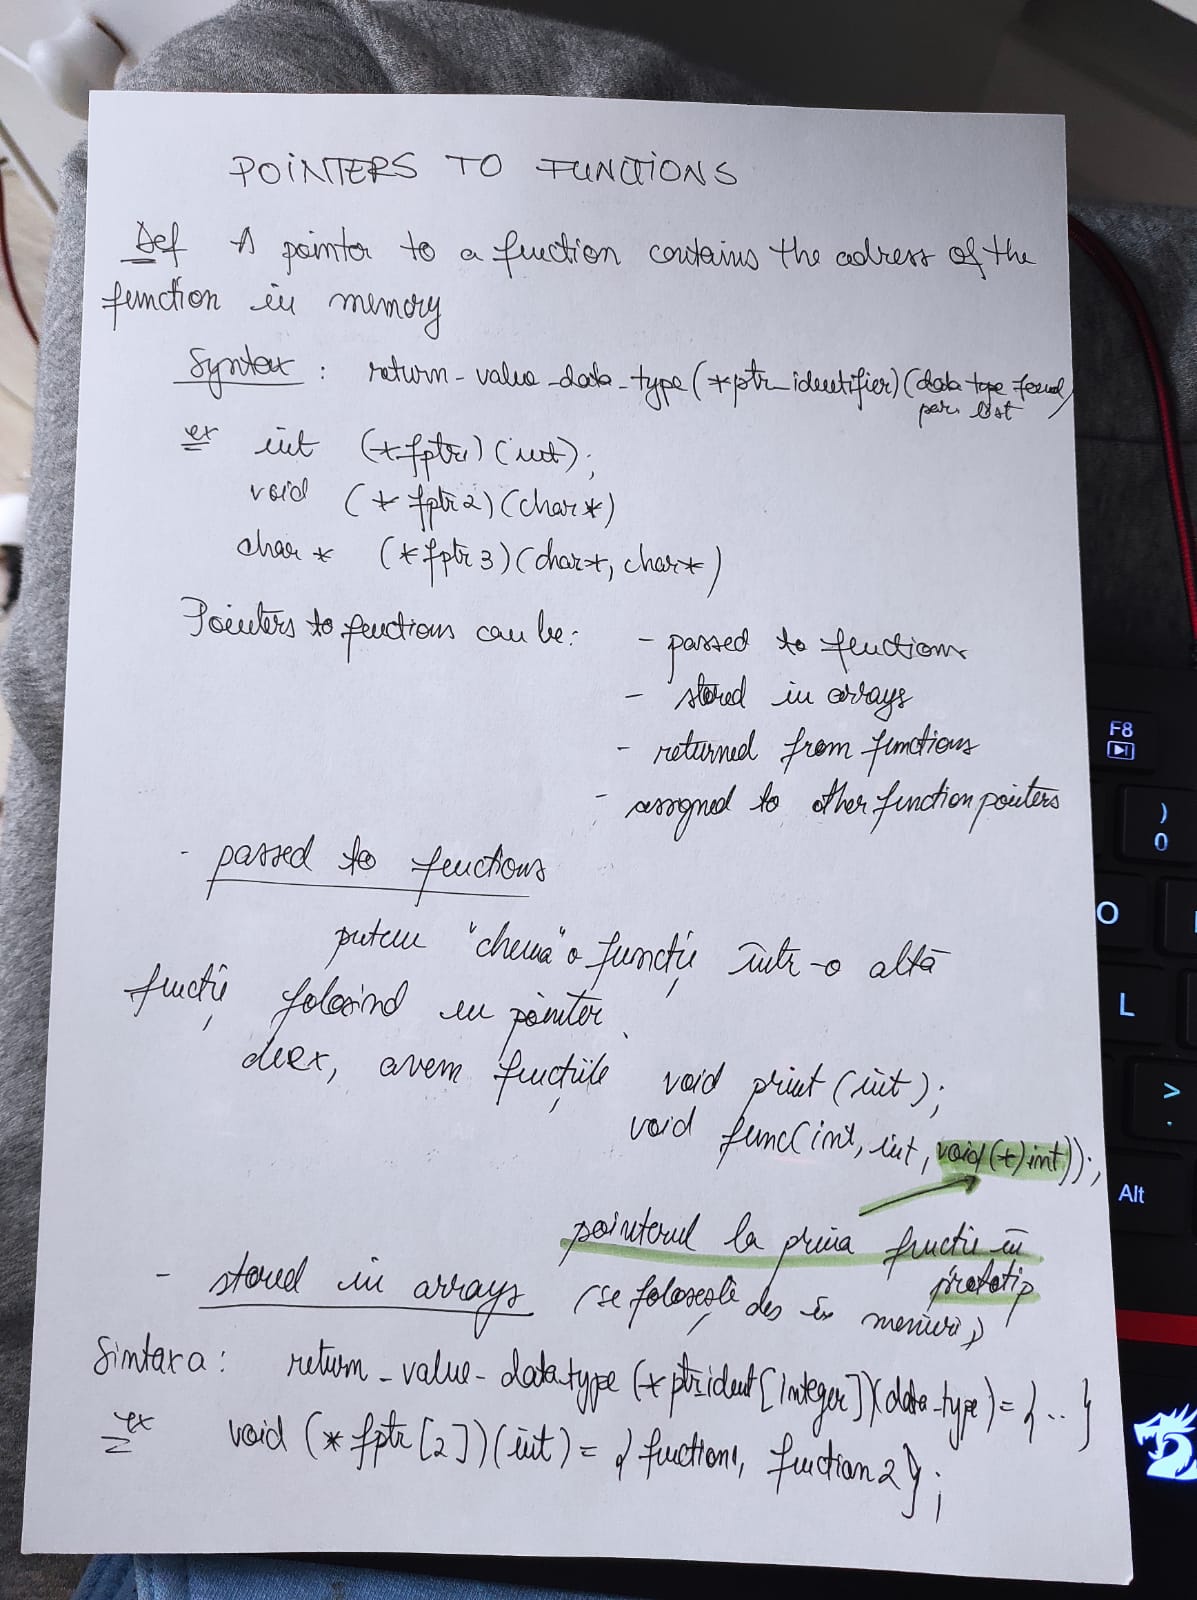 POINTERS TO FUNCTIONS
Def A pointer to a function contains the adress of the
function in memory
Syntax : return_value_data_type (*ptr_identifier)(data type formal
par. list
ex int (*fptr1)(int);
void (*fptr2)(char*)
char * (*fptr3)(char*, char*)
Pointers to functions can be: - passed to functions
- stored in arrays
- returned from functions
- assigned to other function pointers
- passed to functions
putem "chema" o funcție într-o altă
funcție folosind un pointer.
de ex, avem funcțiile void print (int);
void func(int, int, void(*)int));
pointerul la prima functie în
prototip
- stored in arrays (se folosește des în meniuri)
Sintaxa: return_value_data_type (*ptrident[integer])(data_type) = {..}
ex void (*fptr[2])(int) = {function1, function2};
F8
)
0
O
L
>
.
Alt